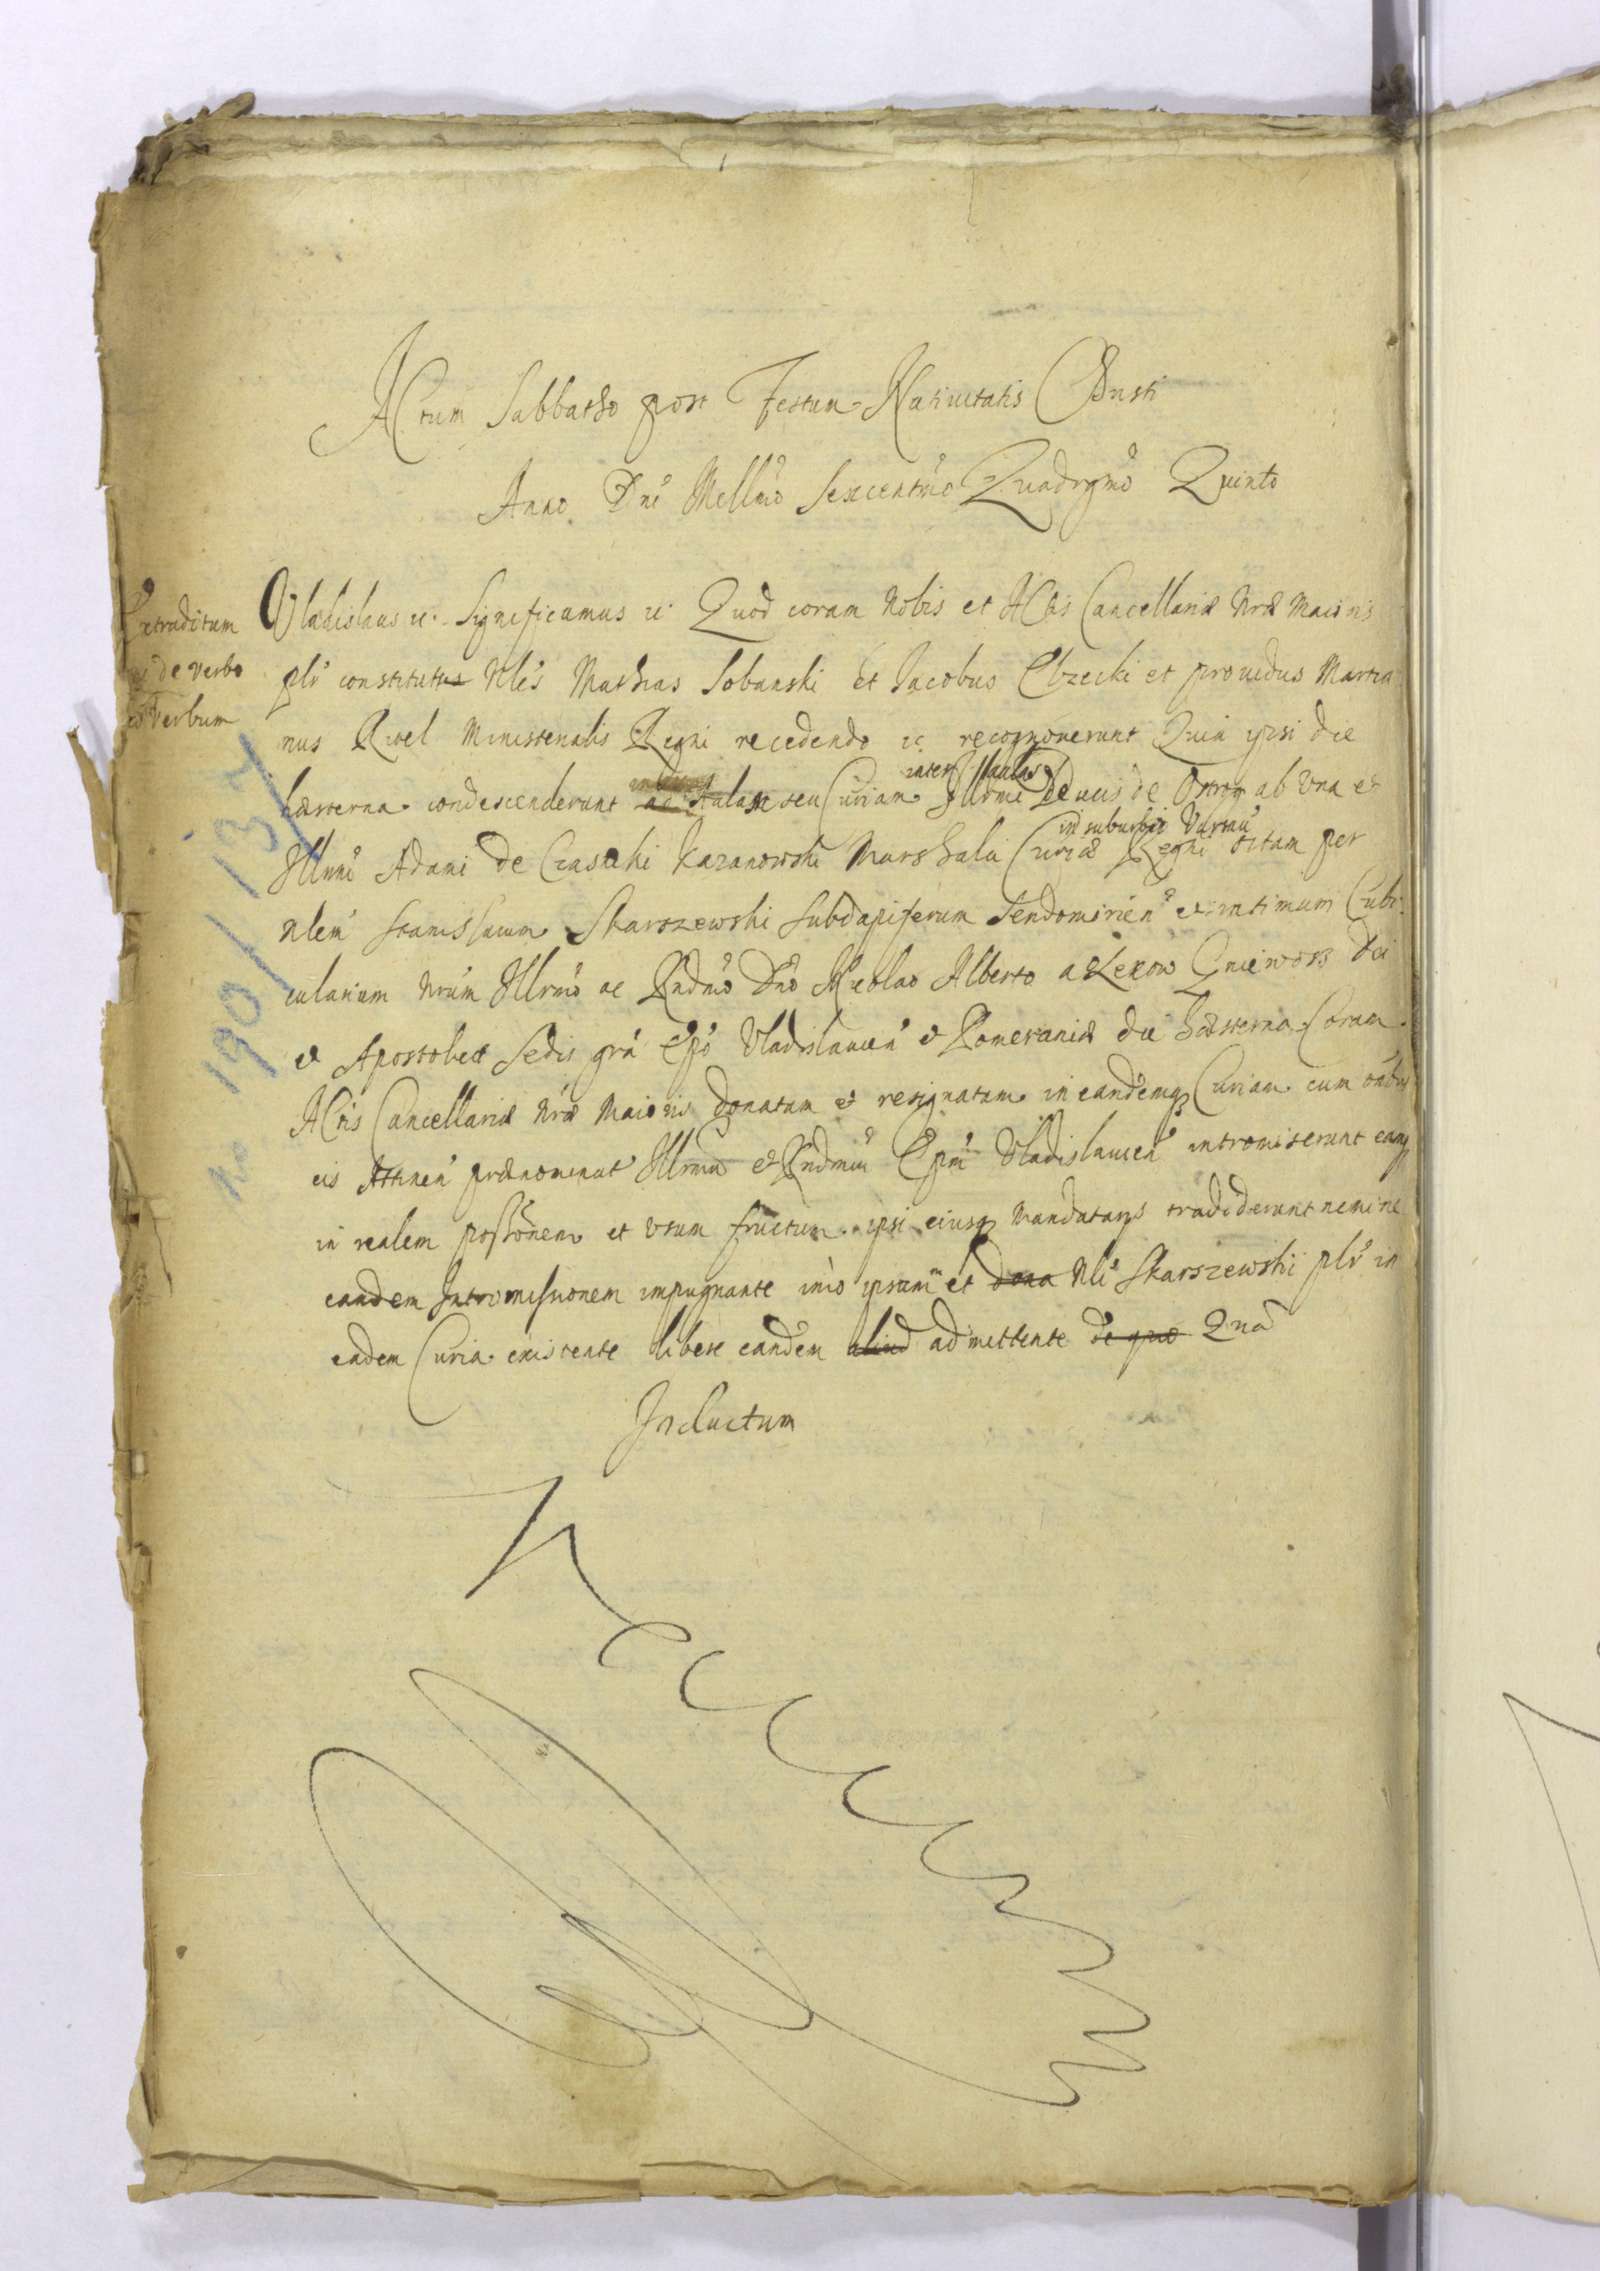 Actum Sabbatho post Festum Nativitatis Christi
Anno Dni Millmo Sexcentmo Quadrgmo Quinto
Extraditum
de verbo
verbum
Vladislaus etc. Significamus etc. Quod coram Nobis et Actis Cancellariæ Nræ Maioris
plr constitutus Nles Mathias Sobanski et Jacobus Obrecki et providus Martia
nus Kisel Ministerialis Regni recedendo etc recognoverunt Quia ipsi die
hæsterna condescenderunt ad Aulam seu Curiam inter Aulas Illrmi Ducis de ab una et
Illrmi Adami de Kazanowski Marshali Curiæ Regni in suburbio Varsav sitam per
Nlem Stanislaum Skarszewski Subdapiferum Sendomirien et intimum Cubi
cularium Nrum Illrmo ac Rndmo Dno Nicolao Alberto a Lexow Gniewosz Dei
et Apostolicæ Sedis gra Epo Vladislavien et Pomeraniæ die hæsterna Coram
Actis Cancellariæ Nræ Maioris donatam et resignatam in eandemq Curiam cum oibus
eis Attinen prænominat Illrmu et Rndmu Epm Vladislavien intromiserunt eamq
in realem possionem et usum fructum ipsi eiusq Mandatarys tradiderunt nemine
eandem Intromissionem impugnante imo ipsam et dona Nli Skarszewskii plr in
eadem Curia existente libere eandem aliud admittente de quo Qua
Inductum
No 190/137